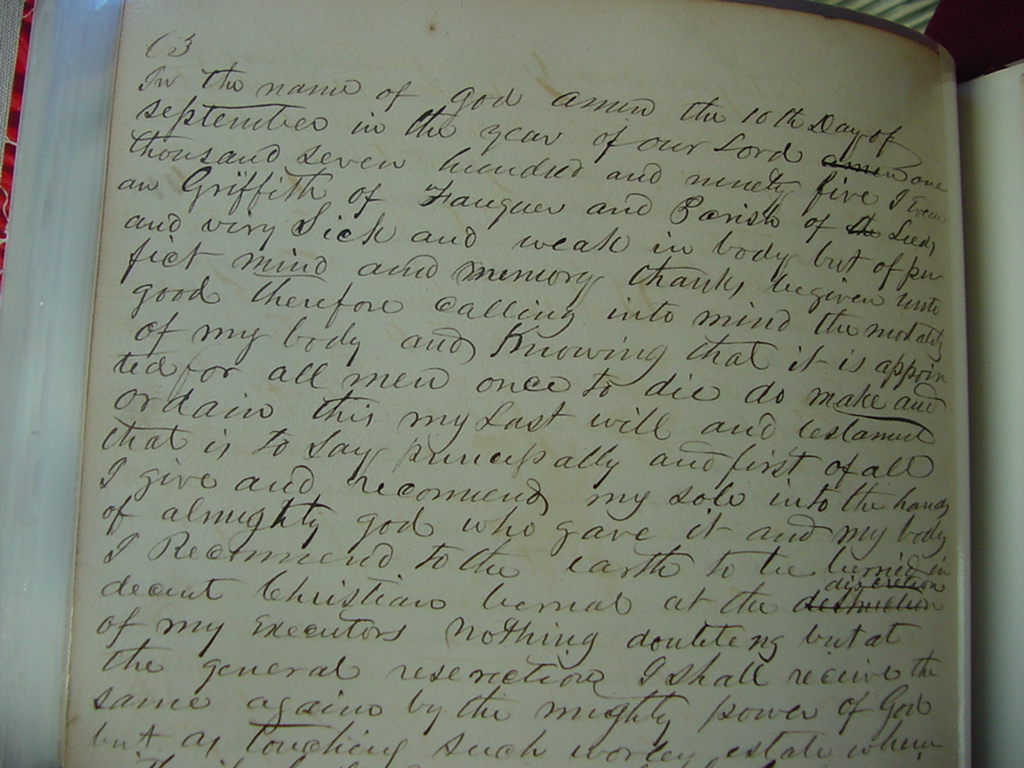 63
In the name of god amen the 10th day of
september in the year of our Lord amen one
thousand seven hundred and ninety five I Evan
an Griffith of Fauquier and Parish of the Leeds
and very Sick and weak in body but of per
fict mind and memory thanks be given unto
good therefore calling into mind the mortality
of my body and Knowing that it is appoin
ted for all men once to die do make and
ordain this my Last will and testament
that is to Say princepally and first of all
I give and Recomend my sole into the hands
of almighty god who gave it and my body
I Recomend to the earth to be buried in
decent Christian berial at the destruction discretion
of my executors nothing doubteng but at
the general reserection I shall receive the
same again by the mighty power of God
but as touching such worley estate wherin